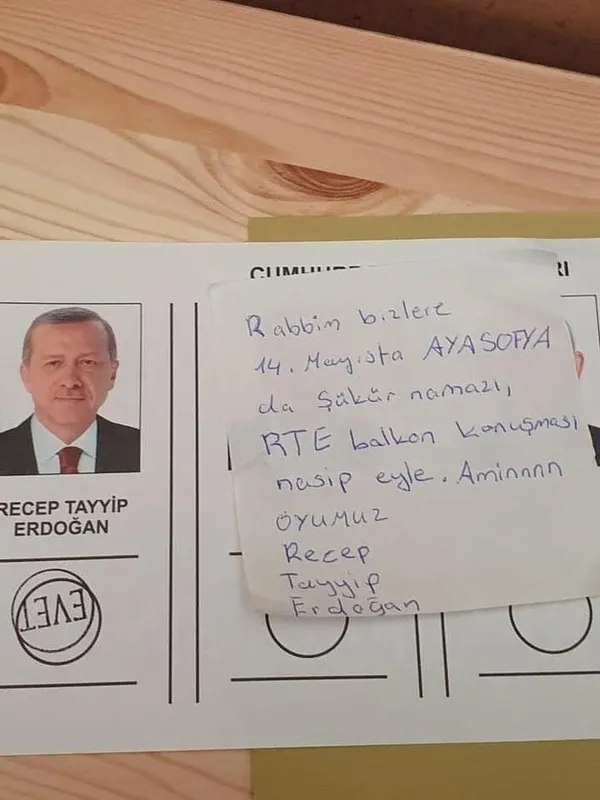 CUMHUR
RI
Rabbim bizlere
14. Mayısta AYASOFYA
da Şükür namazı,
RTE balkon konuşması
nasip eyle. Aminnnn
OYUMUZ
Recep
Tayyip
Erdoğan
RECEP TAYYİP
ERDOĞAN
EVET